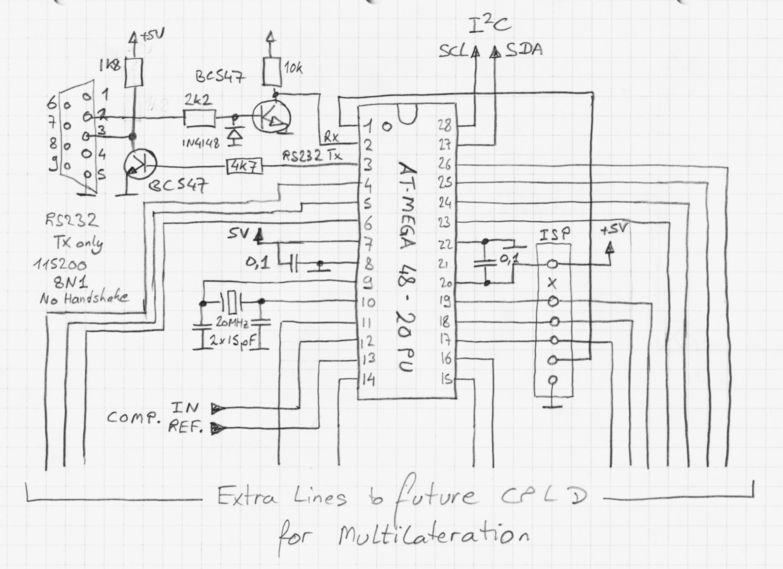 I²C
SCL SDA
+5V
1k8
BC547
10k
2k2
1N4148
Rx
RS232 Tx
4k7
BC547
1
2
3
4
5
6
7
8
9
RS232
Tx only
115200
8N1
No Handshake
5V
0,1
20MHz
2x15pF
COMP. IN
REF.
AT-MEGA 48-20PU
1
2
3
4
5
6
7
8
9
10
11
12
13
14
28
27
26
25
24
23
22
21
20
19
18
17
16
15
0,1
ISP
+5V
x
Extra Lines to future CPLD
for Multilateration